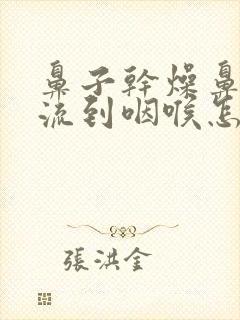 鼻子幹燥鼻
流到咽喉怎
張洪金